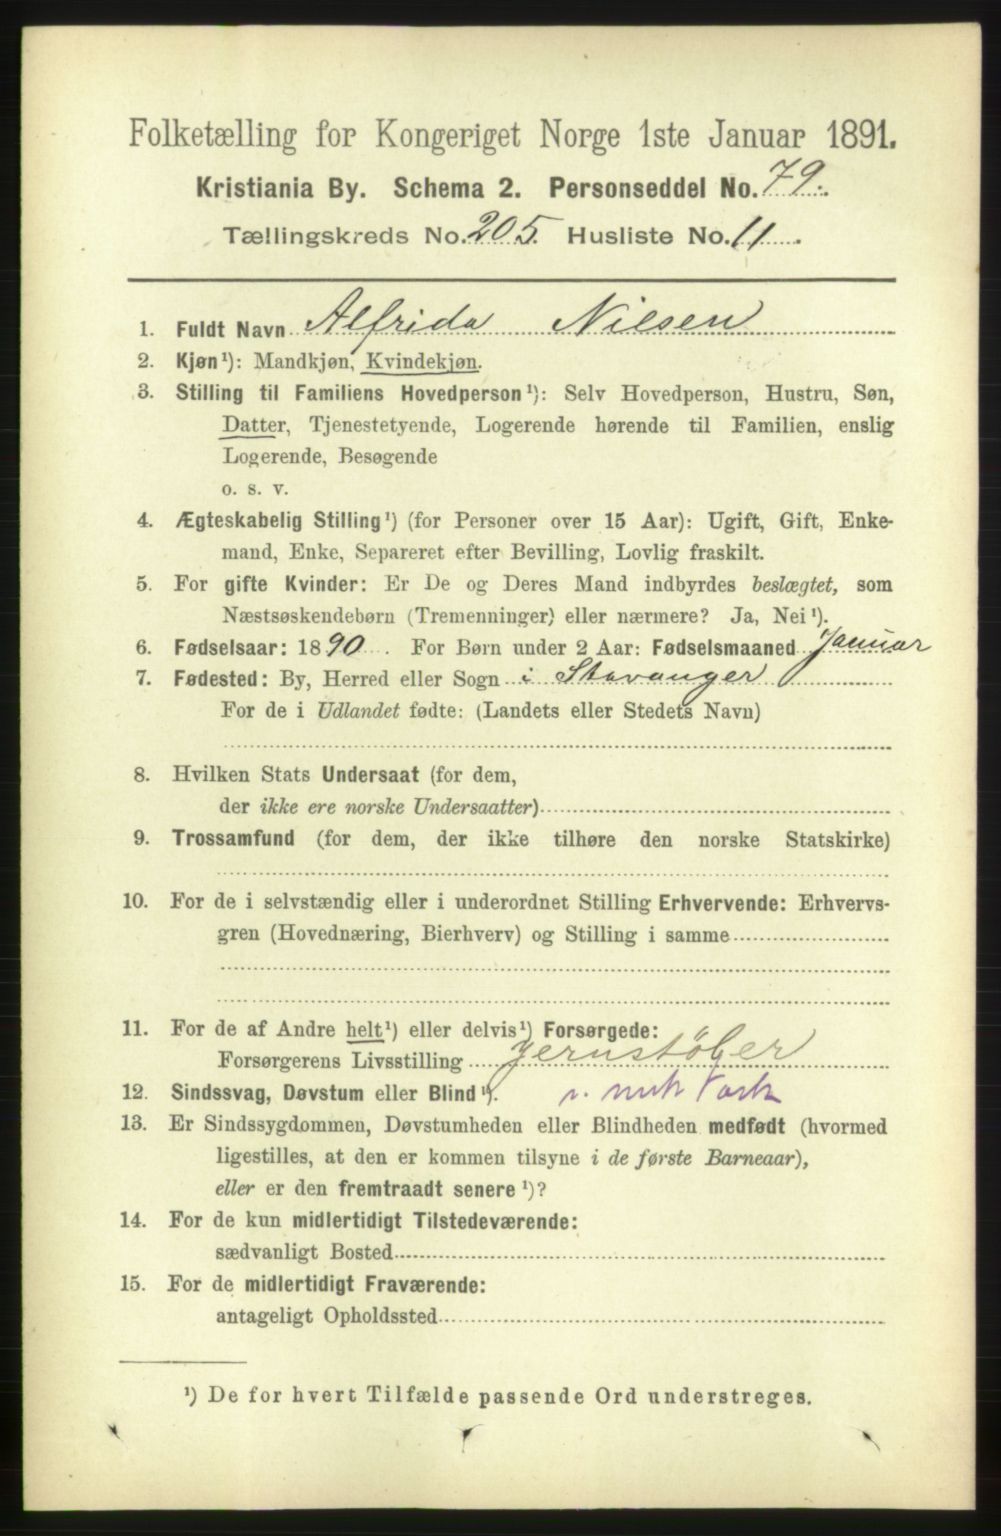 Folketælling for Kongeriget Norge 1ste Januar 1891.
Kristiania By. Schema 2. Personseddel No. 79.
Tællingskreds No. 205. Husliste No. 11.
1. Fuldt Navn Alfrida Nilsen
2. Kjøn¹): Mandkjøn, Kvindekjøn.
3. Stilling til Familiens Hovedperson¹): Selv Hovedperson, Hustru, Søn,
Datter, Tjenestetyende, Logerende hørende til Familien, enslig
Logerende, Besøgende
o. s. v.
4. Ægteskabelig Stilling¹) (for Personer over 15 Aar): Ugift, Gift, Enke-
mand, Enke, Separeret efter Bevilling, Lovlig fraskilt.
5. For gifte Kvinder: Er De og Deres Mand indbyrdes beslægtet, som
Næstsøskendebørn (Tremenninger) eller nærmere? Ja, Nei¹).
6. Fødselsaar: 1890. For Børn under 2 Aar: Fødselsmaaned Januar
7. Fødested: By, Herred eller Sogn i Stavanger
For de i Udlandet fødte: (Landets eller Stedets Navn)
8. Hvilken Stats Undersaat (for dem,
der ikke ere norske Undersaatter)
9. Trossamfund (for dem, der ikke tilhøre den norske Statskirke)
10. For de i selvstændig eller i underordnet Stilling Erhvervende: Erhvervs-
gren (Hovednæring, Bierhverv) og Stilling i samme
11. For de af Andre helt¹) eller delvis¹) Forsørgede:
Forsørgerens Livsstilling Jernstøber
12. Sindssvag, Døvstum eller Blind¹). mek
13. Er Sindssygdommen, Døvstumheden eller Blindheden medfødt (hvormed
ligestilles, at den er kommen tilsyne i de første Barneaar),
eller er den fremtraadt senere¹)?
14. For de kun midlertidigt Tilstedeværende:
sædvanligt Bosted
15. For de midlertidigt Fraværende:
antageligt Opholdssted
¹) De for hvert Tilfælde passende Ord understreges.